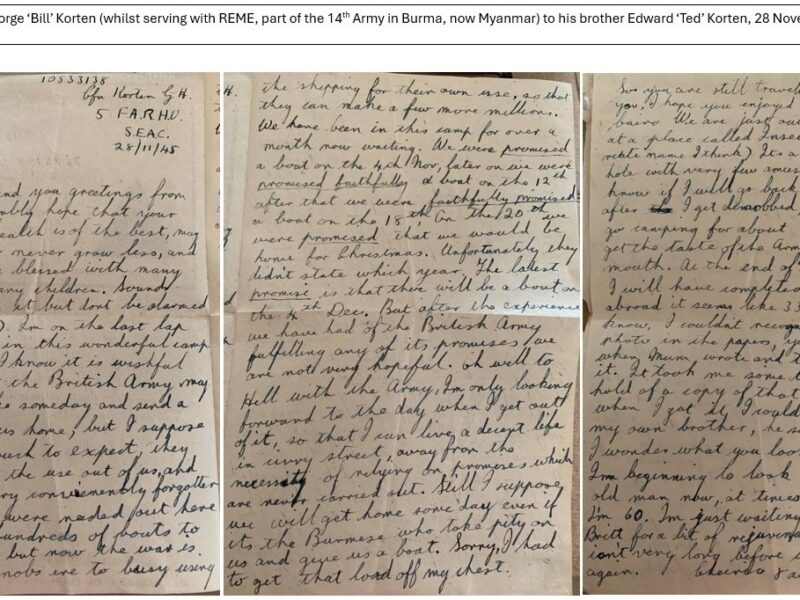 orge ‘Bill’ Korten (whilst serving with REME, part of the 14th Army in Burma, now Myanmar) to his brother Edward ‘Ted’ Korten, 28 Nove
10533138
Cfn Korten G.H.
5 F.A.R.H.U.
S.E.A.C.
28/11/45
nd you greetings from
mbly hope that your
ealth is of the best, may
r never grow less, and
e blessed with many
any children. Sounds
at but dont be alarmed
Im on the last lap
in this wonderful camp
I know it is wishful
the British Army may
e someday and send a
us home, but I suppose
uch to expect, they
the use out of us, and
ry conveniently forgotten
were needed out here
undreds of boats to
but now the war is
nobs are to busy using
the shipping for their own use, so that
they can make a few more millions.
We have been in this camp for over a
month now waiting. We were promised
a boat on the 4th Nov, later on we were
promised faithfully a boat on the 12th
after that we were faithfully promised
a boat on the 18th On the 20th we
were promised that we would be
home for Christmas. Unfortunately they
didn't state which year. The latest
promise is that there will be a boat on
the 4th Dec. But after the experience
we have had of the British Army
fulfilling any of its promises we
are not very hopeful. Oh well to
Hell with the Army, Im only looking
forward to the day when I get out
of it, so that I can live a decent life
in civvy street, away from the
necessity of relying on promises which
are never carried out. Still I suppose
we will get home some day even if
its the Burmese who take pity on
us and give us a boat. Sorry, I had
to get that load off my chest.
So you are still travel
you, I hope you enjoyed
We are just out
at a place called Insei
name I think) Its a
hole with very few amus
know if I will go back
after I get demobbed
go camping for about
get the taste of the Arm
mouth. At the end of
I will have completed
abroad it seems like 33
know, I couldn't recogn
photo in the papers, 
when Mum wrote and t
it. It took me some t
hold of a copy of that
when I got it, I could
my own brother, he s
I wonder what you loo
Im beginning to look
old man now, at times
I'm 60. Im just waiting
Britt for a bit of rejuvena
isn't very long before
again. Cheerio